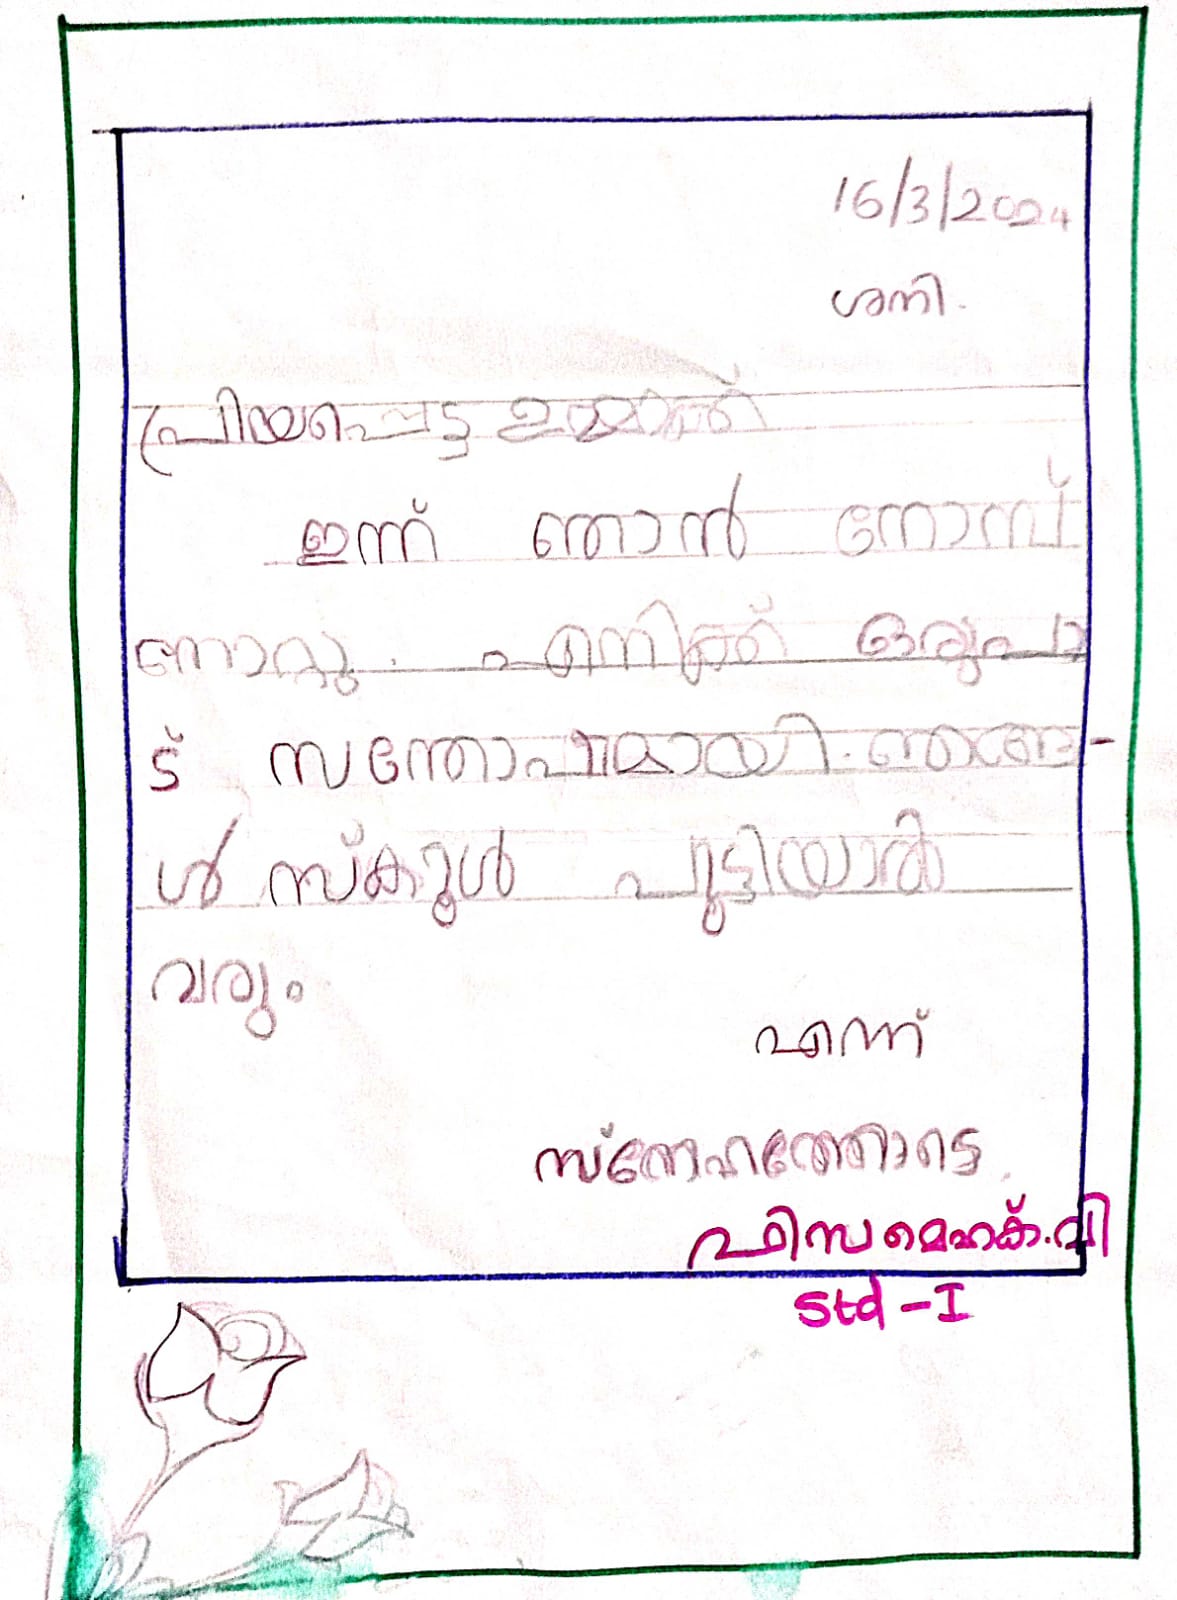 16/3/2024
ശനി.
പ്രിയപ്പെട്ട ഉമ്മാക്ക്
ഇന്ന് ഞാൻ നോമ്പ്
നോറ്റു. എനിക്ക് ഒരുപാ
ട് സന്തോഷമായി. ഞങ്ങ-
ൾ സ്കൂൾ പൂട്ടിയാൽ
വരും.
എന്ന്
സ്നേഹത്തോടെ
ഫിസ മെഹക്.വി
Std - I